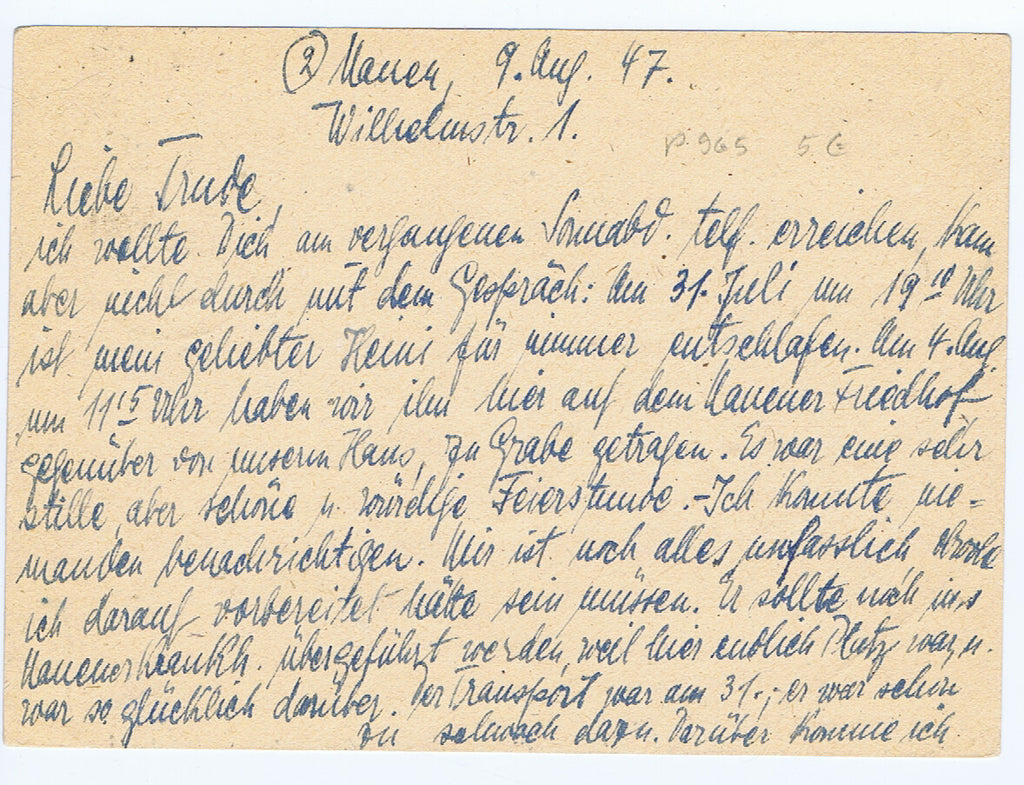 ② Nauen, 9. Aug. 47.
Wilhelmstr. 1.
p. 965 5 €
Liebe Trude,
ich wollte Dich am vergangenen Sonnabd. telf. erreichen, kam
aber nicht durch mit dem Gespräch: Am 31. Juli um 19 10 Uhr
ist mein geliebter Heini für immer entschlafen. Am 4. Aug.
um 11 15 Uhr haben wir ihn hier auf dem Nauener Friedhof
gegenüber von unserm Haus, zu Grabe getragen. Es war eine sehr
stille, aber schöne u. würdige Feierstunde. - Ich konnte nie=
manden benachrichtigen. Mir ist noch alles unfasslich
ich darauf vorbereitet hätte sein müssen. Er sollte noch ins
Nauener Krankh. übergeführt werden, weil hier endlich Platz war, u.
war so glücklich darüber. Der Transport war am 31.; er war schon
zu schwach dazu. Darüber komme ich